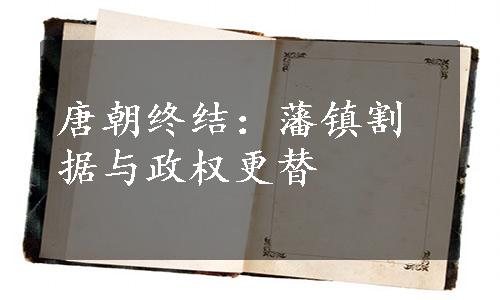 唐朝终结：藩镇割
据与政权更替